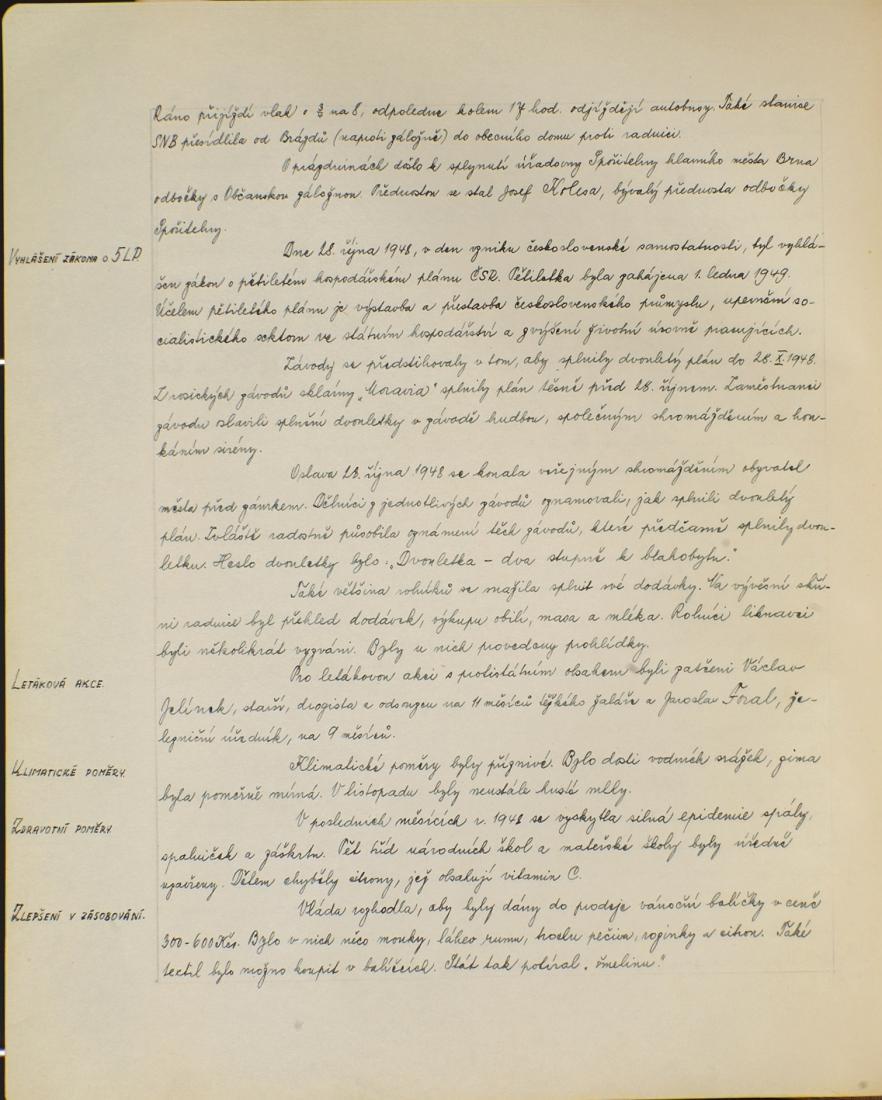 Ráno přijíždí vlak o ¾ na 8, odpoledne kolem 17 hod. odjíždějí autobusy. Také stanice
SNB přesídlila od Brázdů (naproti záložně) do obecního domu proti radnici.
O prázdninách došlo k splynutí úřadovny Spořitelny hlavního města Brna
odbočky s Občanskou záložnou. Přednostou se stal Josef Kolesa, bývalý přednosta odbočky
Spořitelny.
VYHLÁŠENÍ ZÁKONA O 5LP.
Dne 28. října 1948, v den vzniku československé samostatnosti, byl vyhlá-
šen zákon o pětiletém hospodářském plánu ČSR. Pětiletka byla zahájena 1. ledna 1949.
Účelem pětiletého plánu je výstavba a přestavba československého průmyslu, upevnění so-
cialistického sektoru ve státním hospodářství a zvýšení životní úrovně pracujících.
Závody se předstihovaly v tom, aby splnily dvouletý plán do 28. X. 1948.
Z rosických závodů sklárny „Moravia" splnily plán těsně před 28. říjnem. Zaměstnanci
závodu oslavili splnění dvouletky v závodě hudbou, společným shromážděním a hou-
káním sirény.
Oslava 28. října 1948 se konala veřejným shromážděním obyvatel
města před zámkem. Dělníci z jednotlivých závodů oznamovali, jak splnili dvouletý
plán. Zvláště radostně působila oznámení těch závodů, které předčasně splnily dvou-
letku. Heslo dvouletky bylo: „Dvouletka - dva stupně k blahobytu."
Také většina rolníků se snažila splnit své dodávky. Na vývěsní skří-
ni radnice byl přehled dodávek, výkupu obilí, masa a mléka. Rolníci liknavci
byli několikrát vyzváni. Byly u nich provedeny prohlídky.
LETÁKOVÁ AKCE.
Pro letákovou akci s protistátním obsahem byli zatčeni Václav
Jelínek, starší, drogista a odsouzen na 11 měsíců těžkého žaláře a Jaroslav Foral, že-
lezniční úředník, na 9 měsíců.
KLIMATICKÉ POMĚRY.
Klimatické poměry byly příznivé. Bylo dosti vodních srážek, zima
byla poměrně mírná. V listopadu byly neustále husté mlhy.
ZDRAVOTNÍ POMĚRY
V posledních měsících r. 1948 se vyskytla silná epidemie spály,
spalniček a záškrtu. Pět tříd národních škol a mateřské školy byly úředně
uzavřeny. Dětem chyběly citrony, jež obsahují vitamin C.
ZLEPŠENÍ V ZÁSOBOVÁNÍ.
Vláda rozhodla, aby byly dány do prodeje vánoční balíčky v ceně
300-600 Kčs. Bylo v nich něco mouky, láhev rumu, trochu pečiva, rozinky a citron. Také
textil bylo možno koupit v balíčcích. Stát tak potíral „šmelinu."